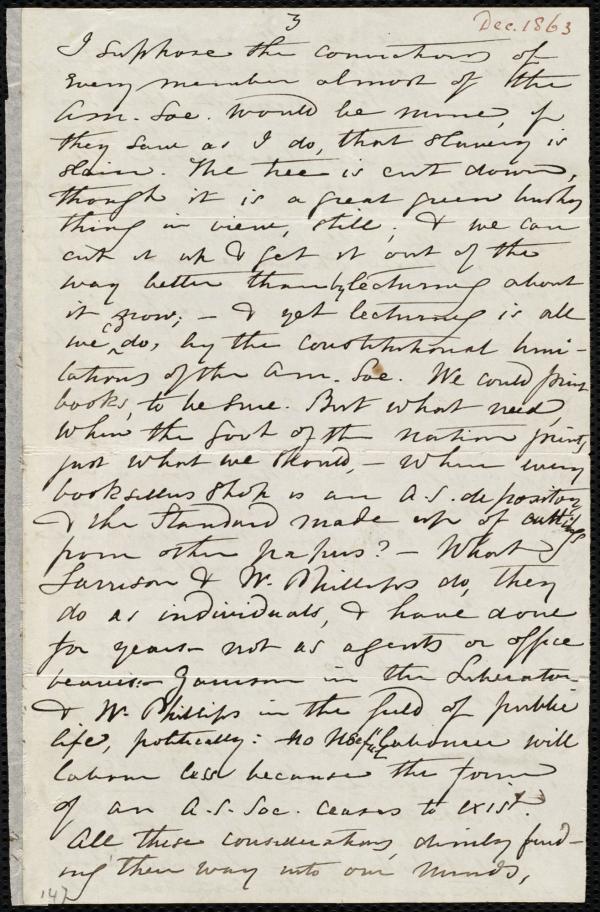 3
Dec. 1863
I suppose the convictions of
every member almost of the
Am. Soc. would be mine, if
they saw as I do, that slavery is
slain. The tree is cut down,
though it is a great green bushy
thing in view, still; & we can
cut it up & get it out of the
way better than by lecturing about
it now; — & yet lecturing is all
we can do, by the constitutional limi-
tations of the Am. Soc. We could print
books, to be sure. But what need,
when the Govt of the nation prints
just what we should, — when every
booksellers shop is an A.S. depository
& the Standard made up of cuttings
from other papers? — What
Garrison & W. Phillips do, they
do as individuals, & have done
for years — not as agents or office
bearers — Garrison in the Liberator
& W. Phillips in the field of public
life, politically: No useful labourer will
labour less because the form
of an A.S. Soc. ceases to exist.
All these considerations, dimly find-
ing their way into our minds,
147